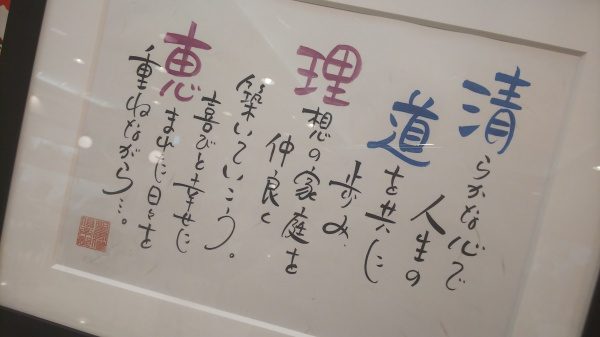 清らかな心で
人生の
道を共に
歩み
理想の家庭を
仲良く
築いていこう。
喜びと幸せに
恵まれた日々を
重ねながら…。